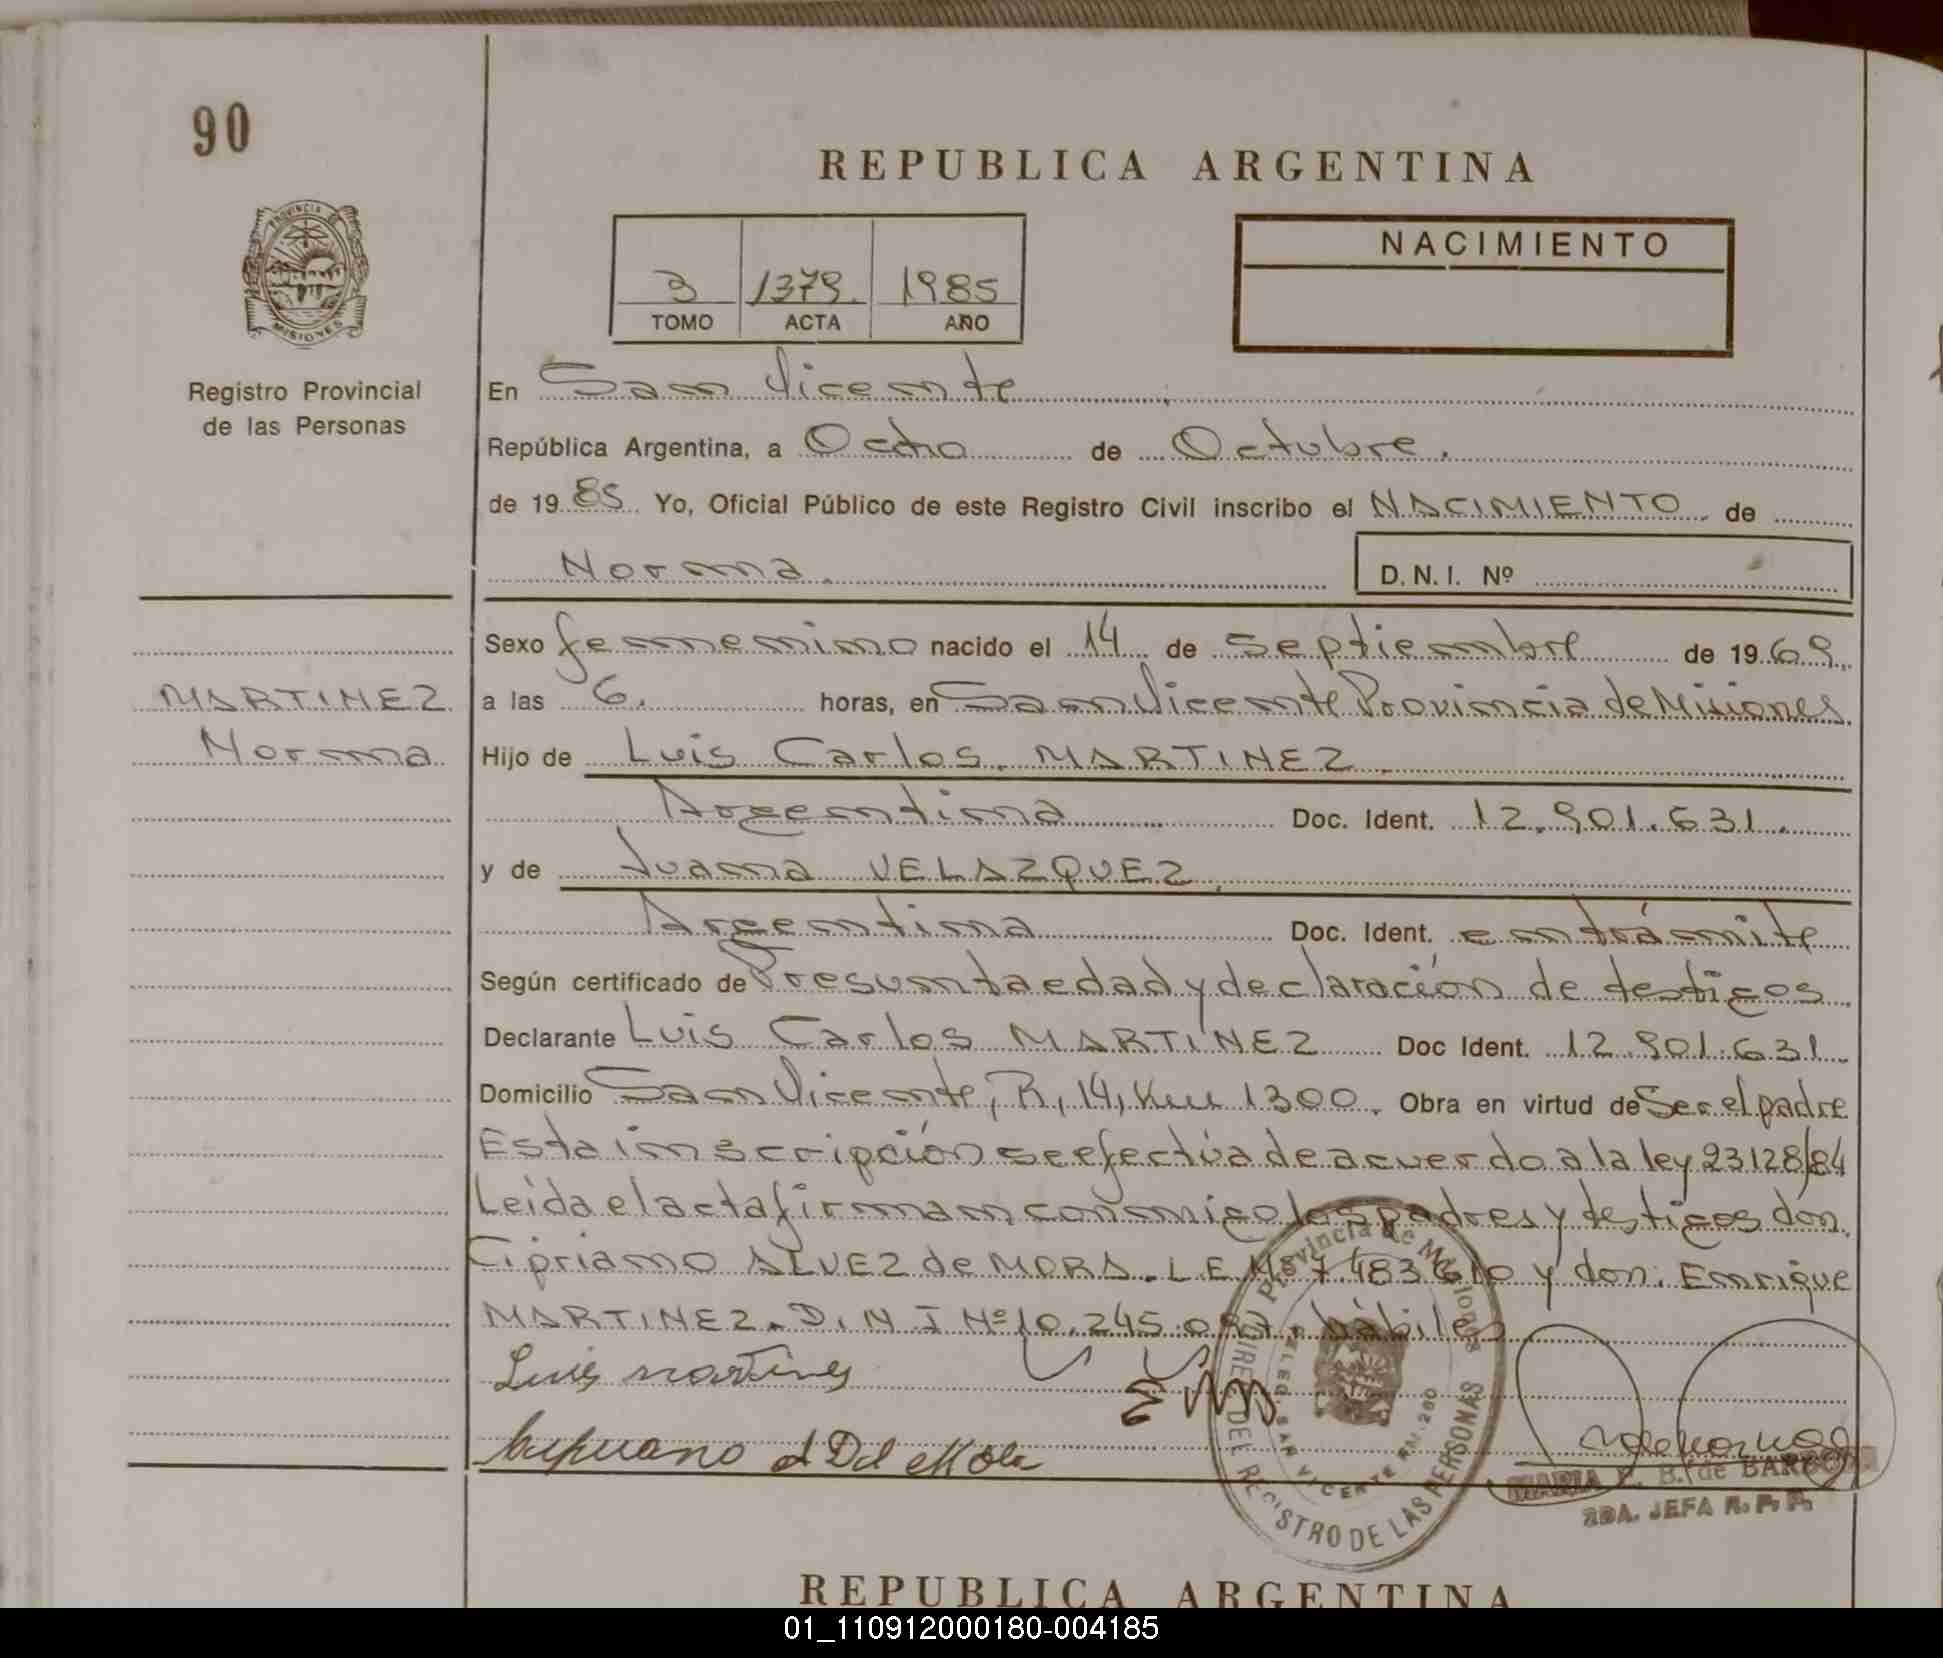 90
REPUBLICA ARGENTINA
PROVINCIA DE
MISIONES
3 1379. 1985
TOMO ACTA AÑO
NACIMIENTO
Registro Provincial
de las Personas
En San Vicente
República Argentina, a Ocho de Octubre.
de 19 85 Yo, Oficial Público de este Registro Civil inscribo el NACIMIENTO de
Norma.
D.N.I. Nº
MARTINEZ
Norma
Sexo femenino nacido el 14 de Septiembre de 19 69.
a las 6. horas, en San Vicente Provincia de Misiones.
Hijo de Luis Carlos MARTINEZ
Argentina Doc. Ident. 12.901.631.
y de Juana VELAZQUEZ.
Argentina Doc. Ident. en trámite
Según certificado de Presunta edad y declaración de testigos.
Declarante Luis Carlos MARTINEZ Doc Ident. 12.901.631.
Domicilio San Vicente, R, 14, Km 1300. Obra en virtud de Ser el padre
Esta inscripción se efectúa de acuerdo a la ley 23128/84
Leída el acta firman conmigo los padres y testigos don.
Cipriano ALVEZ de MORA. L.E Nº 7.483 610 y don. Enrique
MARTINEZ. D.N I Nº 10.245.097. hábiles
Luis martines
EM
Provincia de Misiones
DEL REGISTRO DE LAS PERSONAS
SAN VICENTE
MARIA B. de BARBOZA
2DA. JEFA R. P. P.
REPUBLICA ARGENTINA
01_110912000180-004185